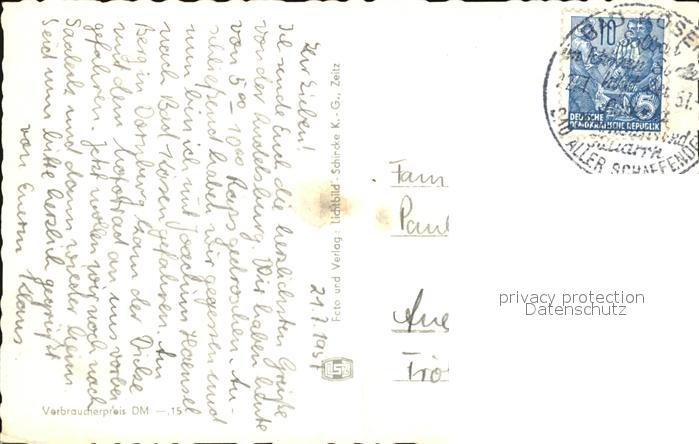 Ihr Lieben!
Ich sende Euch die herzlichsten Grüße
von der Rudelsburg. Wir haben heute
von 5⁰⁰ - 10⁰⁰ Raps gedroschen. An-
schließend haben wir gegessen und
nun bin ich mit Joachim
nach Bad Kösen gefahren. Am
Berg in Dornburg kam der Dicke
mit dem Motorrad an uns vorbei
gefahren. Jetzt wollen wir noch nach
Saaleck und dann wieder heim
Seid nun bitte herzlich gegrüßt
von Eurem Klaus
21.7.1957
Foto und Verlag: Lichtbild-Schincke K.-G., Zeitz
Verbraucherpreis DM —,15
Fam
Paul
10
5
DEUTSCHE
DEMOKRATISCHE REPUBLIK
BAD KÖSEN
BAD ALLER SCHAFFENDEN
privacy protection
Datenschutz